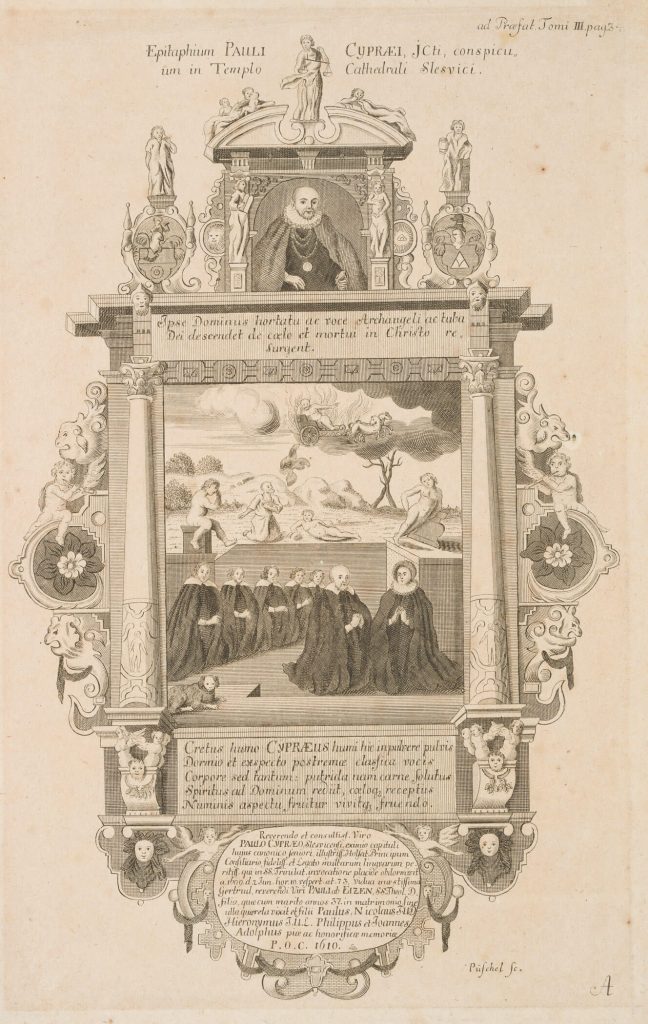 ad Præfat. Tomi III. pag 3.
Epitaphium PAULI CYPRÆI, JCti, conspicu„
um in Templo Cathedrali Slesvici.
Ipse Dominus hortatu ac voce Archangeli ac tuba
Dei descendet de cœlo et mortui in Christo re„
surgent.
Cretus humo CYPRÆUS humi hic in pulvere pulvis
Dormio et exspecto postremæ classica vocis
Corpore sed tantum: putrida nam carne solutus
Spiritus ad Dominum rediit, cœloq; receptus
Numinis aspectu fruitur vivitq; fruendo.
Reverendo et consultiss. Viro
PAULO CYPRÆO, Slesvicensi, eximio capituli
huius canonico seniori, illustriss. Holsat. Principum
Consiliario fideliss. et Legato multarum linguarum pe„
ritiss. qui in SS. Trinitat. invocatione placide obdormivit
a. 1609. d. 2 Jun. hor. 10. vespert. æt. 73. vidua mæstissima
Gertrud, reverendi Viri PAULI ab EIZEN, SS. Theol. D.
filia, quæ cum marito annos 37. in matrimonio sine
ulla querela vixit et filii Paulus, Nicolaus
Hieronymus J.U.L. Philippus et Joannes
Adolphus piæ ac honorificæ memoriæ
P. O. C. 1610.
Püschel sc.
A